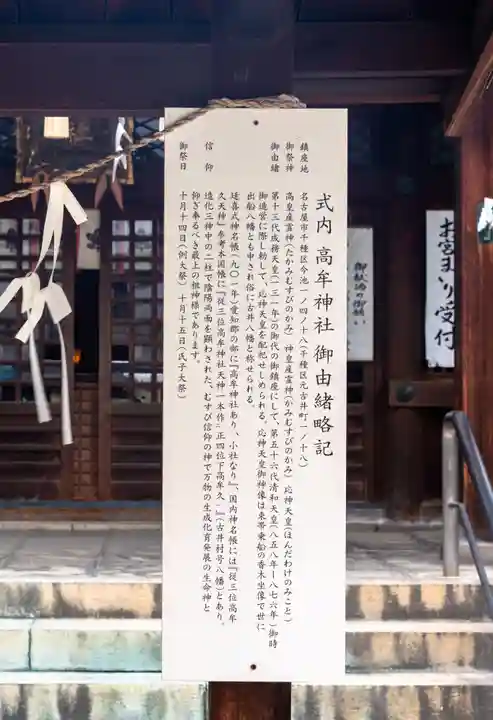 式内 高牟神社 御由緒略記
鎮座地 名古屋市千種区今池一ノ四ノ十八(千種区元古井町一ノ十八)
御祭神 高皇産霊神(たかみむすびのかみ) 神皇産霊神(かみむすびのかみ) 応神天皇(ほんだわけのみこと)
御由緒 第十三代成務天皇(一三一年)の御代の御鎮座にして、第五十六代清和天皇(八五八年ー八七六年)御時
御造営に際し勅して、応神天皇を配祀せしめられる。応神天皇御神像は束帯乗船の香木坐像で世に
出船八幡とも申され俗に古井八幡と称せられる。
延喜式神名帳(九〇一年)愛知郡の部に『高牟神社あり、小社なり』、国内神名帳には『従三位高牟
久天神』参考本国帳に『従三位高牟神社天神一本作ニ正四位下高牟久ノ』(古井村号八幡)とあり。
信仰 造化三神中の二柱で陰陽両面を顕わされた、むすび信仰の神で万物の生成化育発展の生命神と
仰ぎ奉るべき最上の祖神様であります。
御祭日 十月十四日(例大祭) 十月十五日(氏子大祭)
御献酒の御願い
お宮まいり受付